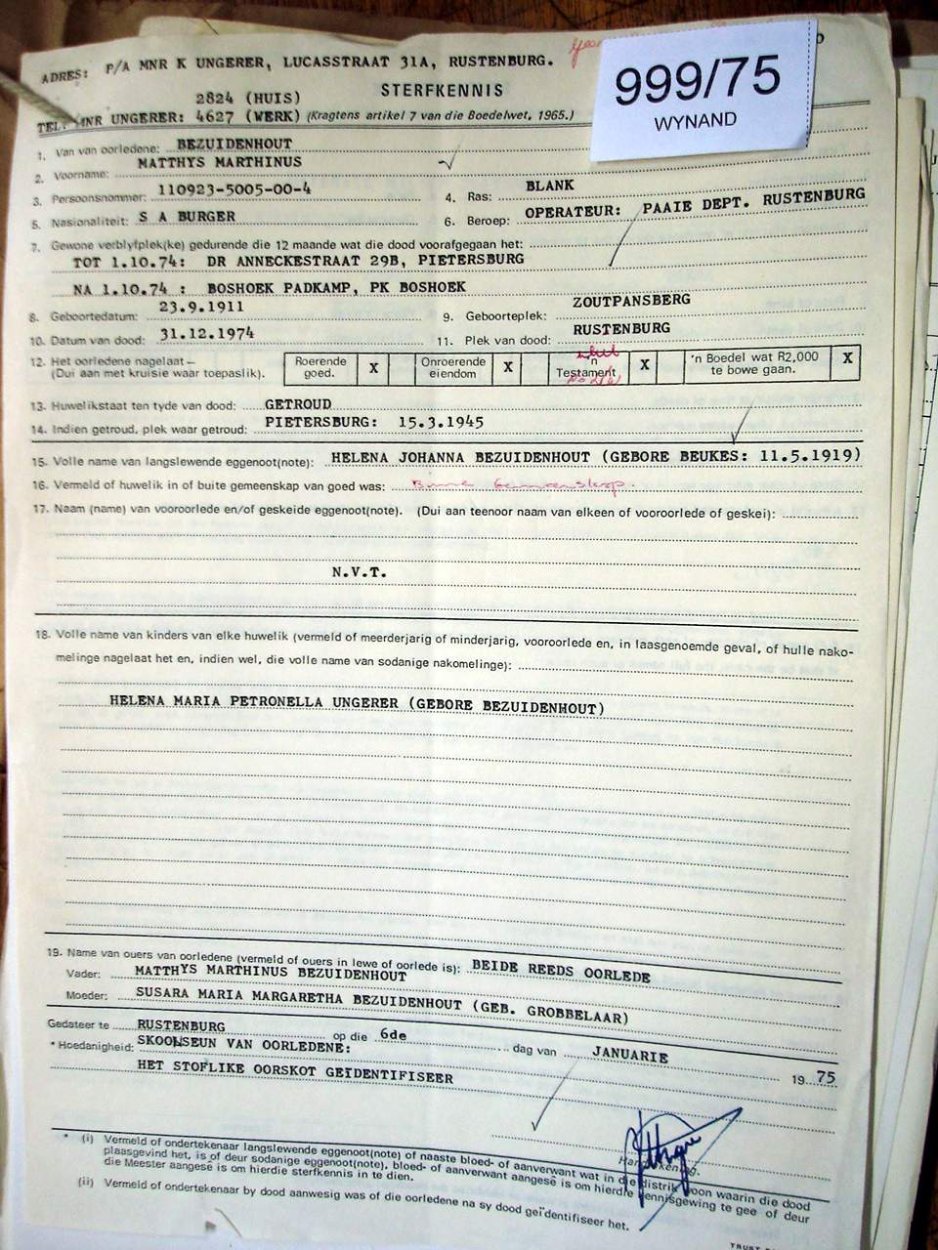 999/75
WYNAND
ADRES: P/A MNR K UNGERER, LUCASSTRAAT 31A, RUSTENBURG.
2824 (HUIS) STERFKENNIS
TEL: MNR UNGERER: 4627 (WERK) (Kragtens artikel 7 van die Boedelwet, 1965.)
1. Van van oorledene: BEZUIDENHOUT
2. Voorname: MATTHYS MARTHINUS
3. Persoonsnommer: 110923-5005-00-4 4. Ras: BLANK
5. Nasionaliteit: S A BURGER 6. Beroep: OPERATEUR: PAAIE DEPT. RUSTENBURG
7. Gewone verblyfplek(ke) gedurende die 12 maande wat die dood voorafgegaan het:
TOT 1.10.74: DR ANNECKESTRAAT 29B, PIETERSBURG
NA 1.10.74 : BOSHOEK PADKAMP, PK BOSHOEK
8. Geboortedatum: 23.9.1911 9. Geboorteplek: ZOUTPANSBERG
10. Datum van dood: 31.12.1974 11. Plek van dood: RUSTENBURG
12. Het oorledene nagelaat — Roerende goed. X Onroerende eiendom X 'n Testament X 'n Boedel wat R2,000 te bowe gaan. X
(Dui aan met kruisie waar toepaslik).
13. Huwelikstaat ten tyde van dood: GETROUD
14. Indien getroud, plek waar getroud: PIETERSBURG: 15.3.1945
15. Volle name van langslewende eggenoot(note): HELENA JOHANNA BEZUIDENHOUT (GEBORE BEUKES: 11.5.1919)
16. Vermeld of huwelik in of buite gemeenskap van goed was: Binne Gemeenskap.
17. Naam (name) van vooroorlede en/of geskeide eggenoot(note). (Dui aan teenoor naam van elkeen of vooroorlede of geskei):
N.V.T.
18. Volle name van kinders van elke huwelik (vermeld of meerderjarig of minderjarig, vooroorlede en, in laasgenoemde geval, of hulle nako-
melinge nagelaat het en, indien wel, die volle name van sodanige nakomelinge):
HELENA MARIA PETRONELLA UNGERER (GEBORE BEZUIDENHOUT)
19. Name van ouers van oorledene (vermeld of ouers in lewe of oorlede is): BEIDE REEDS OORLEDE
Vader: MATTHYS MARTHINUS BEZUIDENHOUT
Moeder: SUSARA MARIA MARGARETHA BEZUIDENHOUT (GEB. GROBBELAAR)
Gedateer te RUSTENBURG op die 6de dag van JANUARIE 19 75
* Hoedanigheid: SKOONSEUN VAN OORLEDENE:
HET STOFLIKE OORSKOT GEIDENTIFISEER
* (i) Vermeld of ondertekenaar langslewende eggenoot(note) of naaste bloed- of aanverwant wat in die distrik woon waarin die dood
plaasgevind het, is of deur sodanige eggenoot(note), bloed- of aanverwant aangesê is om hierdie kennisgewing te gee of deur
die Meester aangesê is om hierdie sterfkennis in te dien.
(ii) Vermeld of ondertekenaar by dood aanwesig was of die oorledene na sy dood geïdentifiseer het.